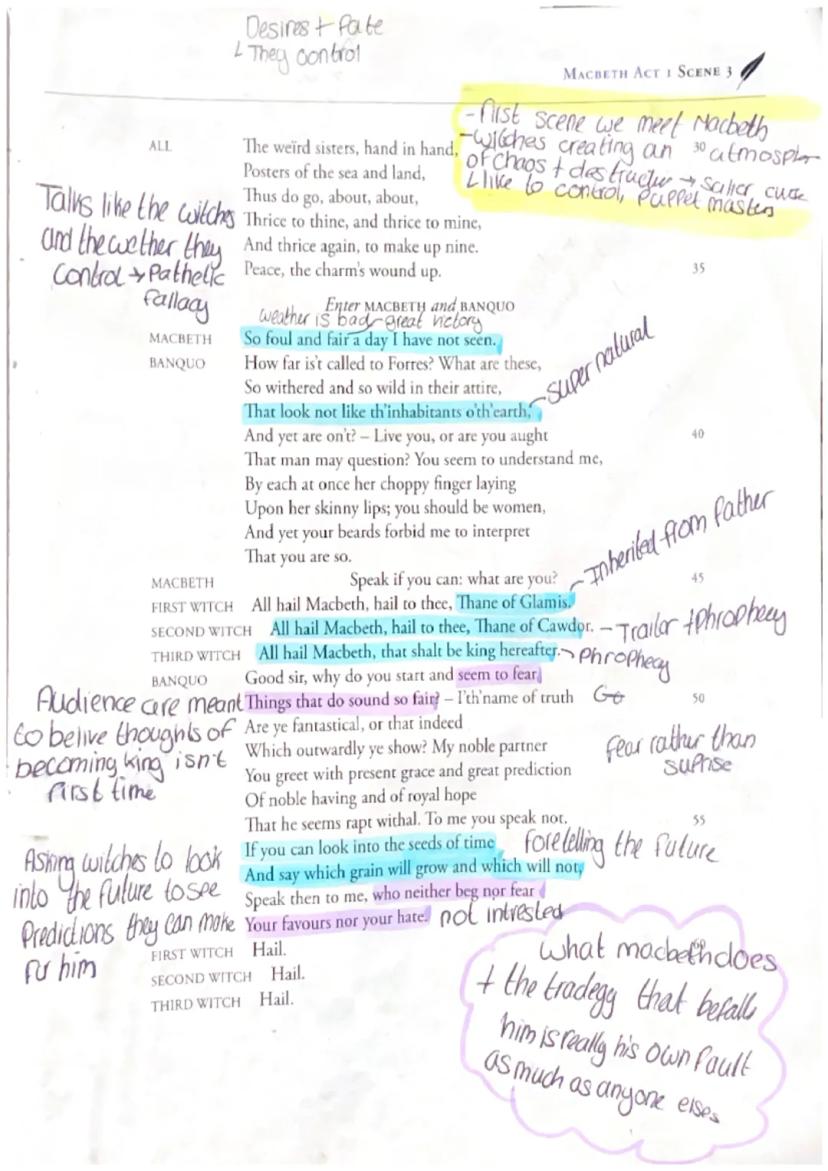 Desires + Fate
↳ They control
MACBETH ACT 1 SCENE 3
- First scene we meet Macbeth
- witches creating an atmosph
of chaos + destructur → sailier curse
↳ like to control, Puppet masters
ALL The weïrd sisters, hand in hand, 30
Posters of the sea and land,
Thus do go, about, about,
Thrice to thine, and thrice to mine,
And thrice again, to make up nine.
Peace, the charm's wound up. 35
Talks like the witches
and the wether they
control → Pathetic
fallacy
Enter MACBETH and BANQUO
weather is bad great victory
MACBETH So foul and fair a day I have not seen.
BANQUO How far is't called to Forres? What are these,
So withered and so wild in their attire,
That look not like th'inhabitants o'th'earth, super natural
And yet are on't? – Live you, or are you aught 40
That man may question? You seem to understand me,
By each at once her choppy finger laying
Upon her skinny lips; you should be women,
And yet your beards forbid me to interpret
That you are so.
MACBETH Speak if you can: what are you? 45
FIRST WITCH All hail Macbeth, hail to thee, Thane of Glamis. - Inherited from father
SECOND WITCH All hail Macbeth, hail to thee, Thane of Cawdor. - Traitor + phrophecy
THIRD WITCH All hail Macbeth, that shalt be king hereafter. Phrophecy
BANQUO Good sir, why do you start and seem to fear
Things that do sound so fair? – I'th'name of truth 50
Are ye fantastical, or that indeed
Which outwardly ye show? My noble partner
You greet with present grace and great prediction
Of noble having and of royal hope
That he seems rapt withal. To me you speak not. 55
Audience are meant
to belive thoughts of
becoming king isn't
first time
fear rather than
suprise
If you can look into the seeds of time foretelling the future
And say which grain will grow and which will not,
Speak then to me, who neither beg nor fear
Your favours nor your hate. not intrested
Asking witches to look
into the future to see
Predictions they can make
fr him
FIRST WITCH Hail.
SECOND WITCH Hail.
THIRD WITCH Hail.
what macbeth does
+ the tradegy that befalls
him is really his own fault
as much as anyone elses